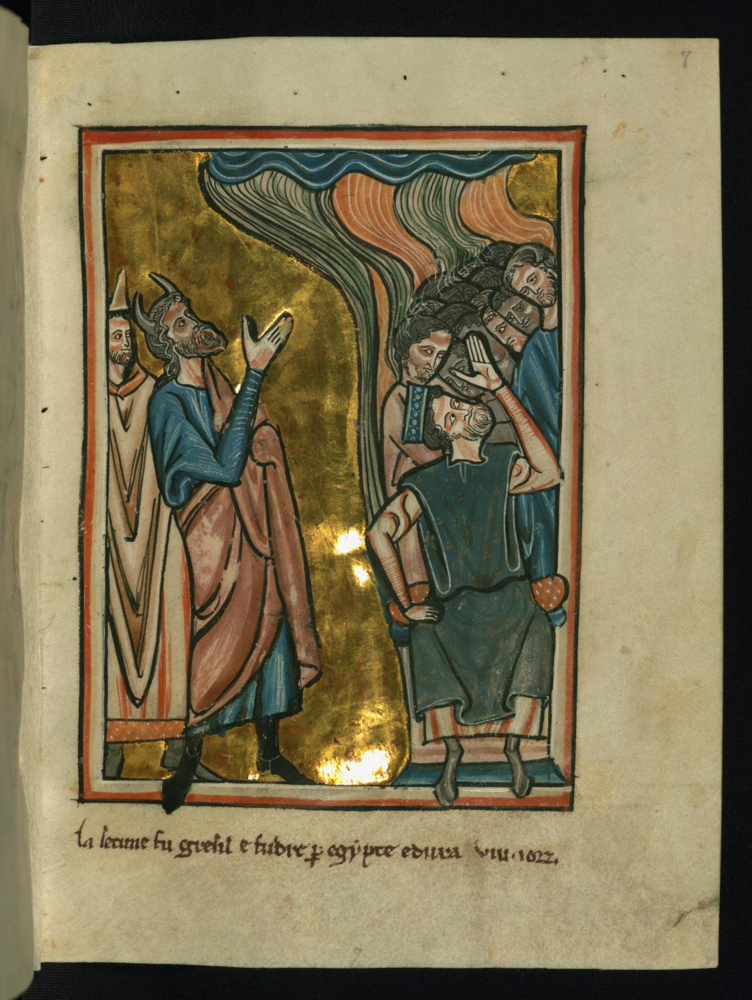 7
la setime fu gresil e fudre ꝑ egypte e dura viii iorz.